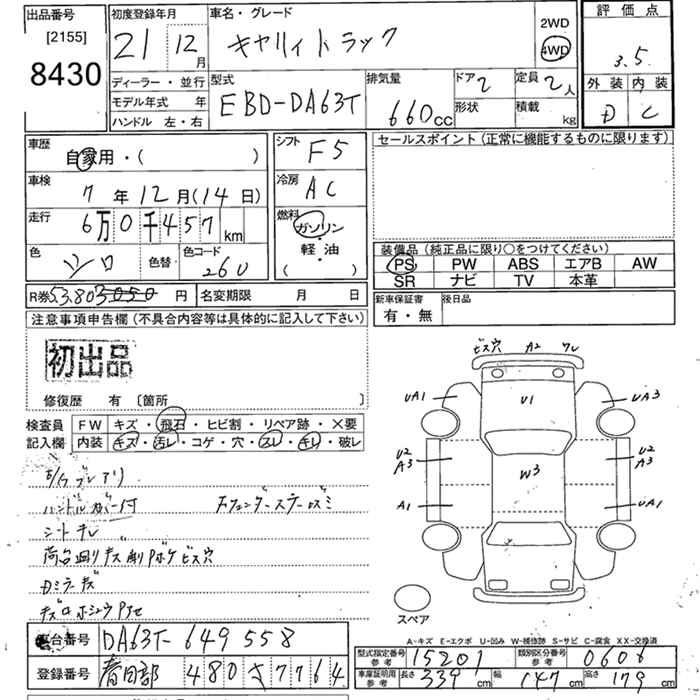 出品番号
[2155]
8430
初度登録年月
21年 12月
車名・グレード
キャリィトラック
2WD
4WD
評価点
3.5
外装 内装
D C
ディーラー・並行
モデル年式 年
ハンドル 左・右
型式
EBD-DA63T
排気量
660cc
ドア 2
形状
定員 2人
積載 kg
車歴
自家用・( )
シフト
F5
セールスポイント(正常に機能するものに限ります)
車検
7年12月(14日)
冷房
AC
走行
6万0千457km
燃料
ガソリン
・
軽・油
( )
色
シロ
色替
色コード
26U
装備品(純正品に限り○をつけてください)
PS PW ABS エアB AW
SR ナビ TV 本革
R券 円
名変期限 月 日
新車保証書
有・無
後日品
注意事項申告欄(不具合内容等は具体的に記入して下さい)
初出品
修復歴 有〔箇所 〕
検査員
記入欄
FW キズ・飛石・ヒビ割・リペア跡・×要
内装 キズ・汚レ・コゲ・穴・スレ・キレ・破レ
ハンドルカバー付
シートキレ
Dミラーキズ
ビス穴 A2 ワレ
UA1 U1 UA3
U2
A3
W3
U2
A3
A1 UA1
スペア
A-キズ E-エクボ U-凹み W-補修跡 S-サビ C-腐食 XX-交換済
車台番号 DA63T-649558
登録番号 春日部 480 さ 7764
型式指定番号
参考
15201
類別区分番号
参考
0606
車庫証明用
参考
長さ 339cm 幅 147cm 高さ 179cm